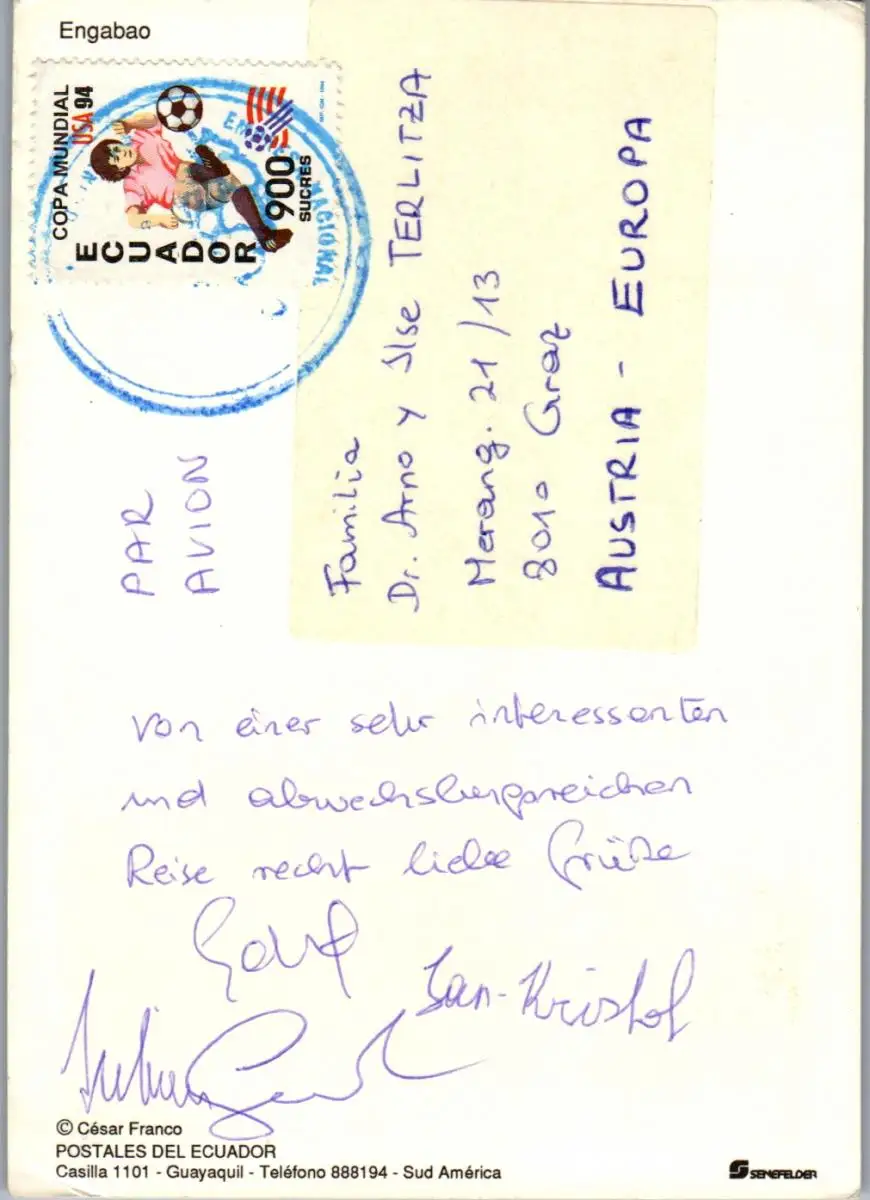 Engabao
COPA MUNDIAL
USA 94
ECUADOR
900
SUCRES
NACIONAL
PAR
AVION
Familia
Dr. Arno y Ilse TERLITZA
Merang. 21/13
8010 Graz
AUSTRIA - EUROPA
Von einer sehr interessanten
und abwechslungsreichen
Reise recht liebe Grüße
Jan-Kristof
© César Franco
POSTALES DEL ECUADOR
Casilla 1101 - Guayaquil - Teléfono 888194 - Sud América
SENEFELDER